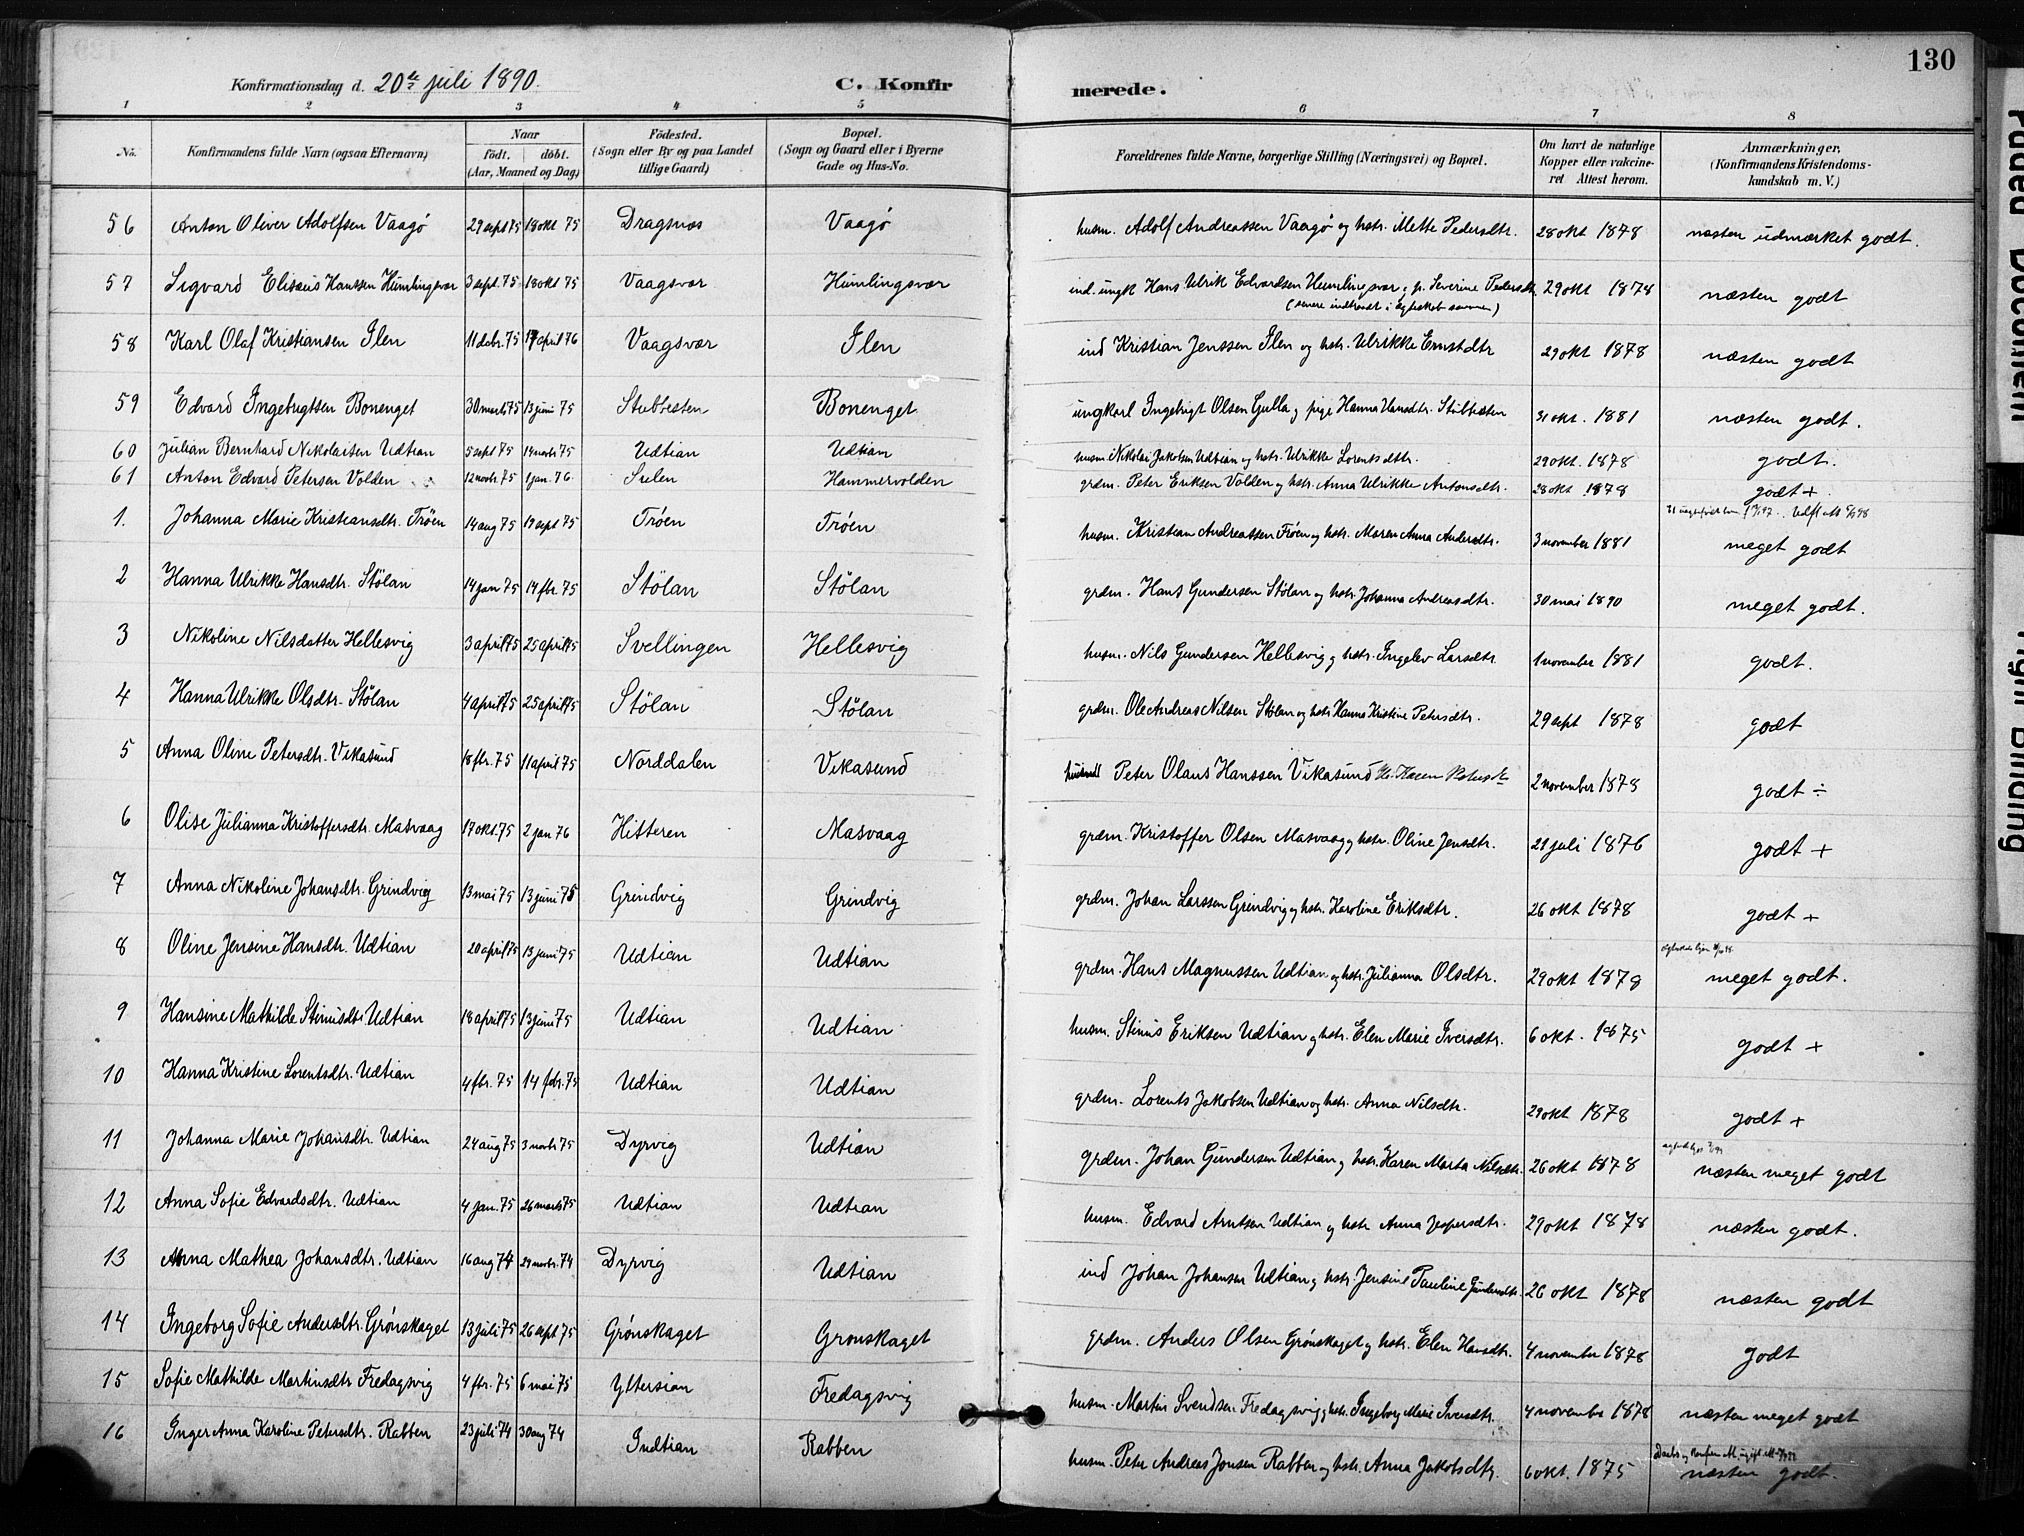 130
Konfirmationsdag d. 20de juli 1890.
C. Konfirmerede.
1 2 3 4 5 6 7 8
No. Konfirmandens fulde Navn (ogsaa Efternavn) Naar født. døbt. (Aar, Maaned og Dag) Födested. (Sogn eller By og paa Landet tillige Gaard) Bopæl. (Sogn og Gaard eller i Byerne Gade og Hus-No. Forældrenes fulde Navne, borgerlige Stilling (Næringsvei) og Bopæl. Om havt de naturlige Kopper eller vakcineret Attest herom. Anmærkninger, (Konfirmandens Kristendomskundskab m. V.)
56 Anton Oliver Adolfsen Vaagø 29 sept 75 18 okt 75 Dragsnæs Vaagø husm. Adolf Andreassen Vaagø og hstr. Mette Pedersdtr. 28 okt 1878 næsten udmærket godt.
57 Sigvard Elisæus Hanssen Humlingsvær 3 sept. 75 18 okt 75 Vaagsvær Humlingsvær ind. ungk Hans Ulrik Edvardsen Humlingsvær og p. Severine Pedersdtr. 29 okt 1878 næsten godt
58 Karl Olaf Kristiansen Ilen 11 debr. 75 17 april 76 Vaagsvær Ilen ind Kristian Jenssen Ilen og hstr. Ulrikke Ernstdtr 29 okt 1878 næsten godt
59 Edvard Ingebrigtsen Bonenget 30 marts 75 13 juni 75 Stubbesten Bonenget ungkarl Ingebrigt Olsen Gulla og pige Hanna Hansdtr. 31 okt. 1881 næsten godt.
60 Julian Bernhard Nikolaisen Udtian 5 sept 75 14 novbr 75 Udtian Udtian husm. Nikolai Jakobsen Udtian og hstr. Ulrikke Lorentsdtr. 29 okt. 1878 godt.
61 Anton Edvard Petersen Volden 12 novbr. 75 1 jan. 76. Sulen Hammervolden grdm. Peter Eriksen Volden og hstr. Anna Ulrikke Antonsdtr. 28 okt 1878 godt +
1. Johanna Marie Kristiansdtr. Trøen 14 aug 75 19 sept 75 Trøen Trøen husm. Kristian Andreassen Trøen og hstr. Maren Anna Andersdtr. 3 november 1881 meget godt
2 Hanna Ulrikke Hansdtr. Stølan 14 jan 75 14 fbr. 75 Stølan Stølan grdm. Hans Gundersen Stølan og hstr. Johanna Andreasdtr. 30 mai 1890 meget godt.
3 Nikoline Nilsdatter Hellesvig 3 april 75 25 april 75 Svellingen Hellesvig husm. Nils Gundersen Hellesvig og hstr. Ingelev Larsdtr 1 november 1881 godt.
4 Hanna Ulrikke Olsdtr. Stølan 4 april 75 25 april 75 Stølan Stølan grdm. Ole Andreas Nilsen Stølan og hstr. Hanna Kristine Petersdtr. 29 sept 1878 godt
5 Anna Oline Petersdtr. Vikasund 18 fbr. 75 11 april 75 Norddalen Vikasund Peter Olaus Hanssen Vikasund 2 november 1878 godt ÷
6 Olise Julianna Kristoffersdtr. Masvaag 17 okt. 75 2 jan 76 Hitteren Masvaag grdm. Kristoffer Olsen Masvaag og hstr. Oline Jensdtr. 21 juli 1876 godt +
7 Anna Nikoline Johansdtr. Grindvig 13 mai 75 13 juni 75 Grindvig Grindvig grdm. Johan Larssen Grindvig og hstr. Karoline Eriksdtr. 26 okt 1878 godt +
8 Oline Jensine Hansdtr. Udtian 20 april 75 13 juni 75 Udtian Udtian grdm. Hans Magnussen Udtian og hstr. Julianna Olsdtr. 29 okt 1878 meget godt.
9 Hansine Mathilde Stinusdtr Udtian 18 april 75 13 juni 75 Udtian Udtian husm. Stinus Eriksen Udtian og hstr. Elen Marie Iversdtr. 6 okt. 1875 godt +
10 Hanna Kristine Lorentsdtr. Udtian 4 fbr. 75 14 febr. 75 Udtian Udtian grdm. Lorents Jakobsen Udtian og hstr. Anna Nilsdtr. 29 okt 1878 godt +
11 Johanna Marie Johansdtr. Udtian 24 aug 75 3 novbr 75 Dyrvig Udtian grdm. Johan Gundersen Udtian og hstr. Karen Marta Nilsdtr. 26 okt 1878 næsten meget godt
12 Anna Sofie Edvardsdtr. Udtian 4 jan. 75 26 marts 75 Udtian Udtian husm. Edvard Arntsen Udtian og hstr Anna Jespersdtr. 29 okt 1878 næsten godt.
13 Anna Mathea Johansdtr. Udtian 16 aug 74 29 novbr. 74 Dyrvig Udtian ind Johan Johansen Udtian og hstr. Jensine Pauline Gundersdtr. 26 okt 1878 næsten godt
14 Ingeborg Sofie Andersdtr. Grønskaget 13 juli 75 26 sept 75 Grønskaget Grønskaget grdm. Anders Olsen Grønskaget og hstr. Elen Hansdtr. 4 november 1878 godt
15 Sofie Mathilde Martinsdtr Fredagsvig 4 fbr. 75 6 mai 75 Yttersian Fredagsvig husm. Martin Svendsen Fredagsvig og hstr. Ingeborg Marie Iversdtr. 4 november 1878 næsten meget godt
16 Inger Anna Karoline Petersdtr. Rabben 23 juli 74 30 aug 74 Indtian Rabben husm. Peter Andreas Jonsen Rabben og hstr. Anna Jakobsdtr. 6 okt. 1875 næsten godt.